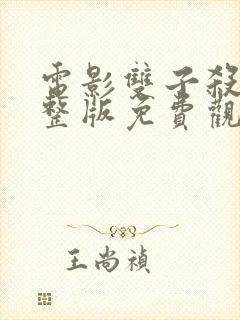 電影雙子殺
整版免費觀
王尚禎